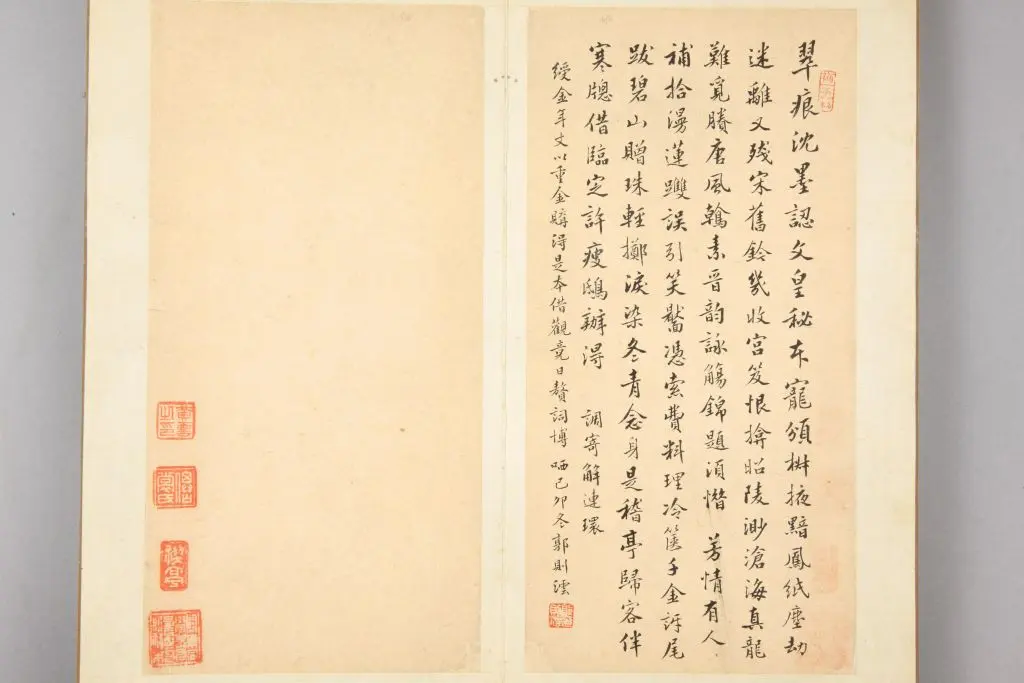 翠痕沈墨認文皇秘本寵頒椒掖黯鳳紙塵劫
迷離又殘宋舊鈐幾收宮笈恨揜昭陵渺滄海真龍
難覓賸唐風翰素晉韵詠觴錦題須惜 芳情有人
補拾漫蓮躞誤引笑憑索費料理冷篋千金訝尾
跋碧山贈珠輕擲淚染冬青念身是稽亭歸客伴
寒牕借臨定許瘦鴟辦得 調寄解連環
綬金年丈以重金購得是本借觀竟日贅詞博 哂己卯冬郭則澐